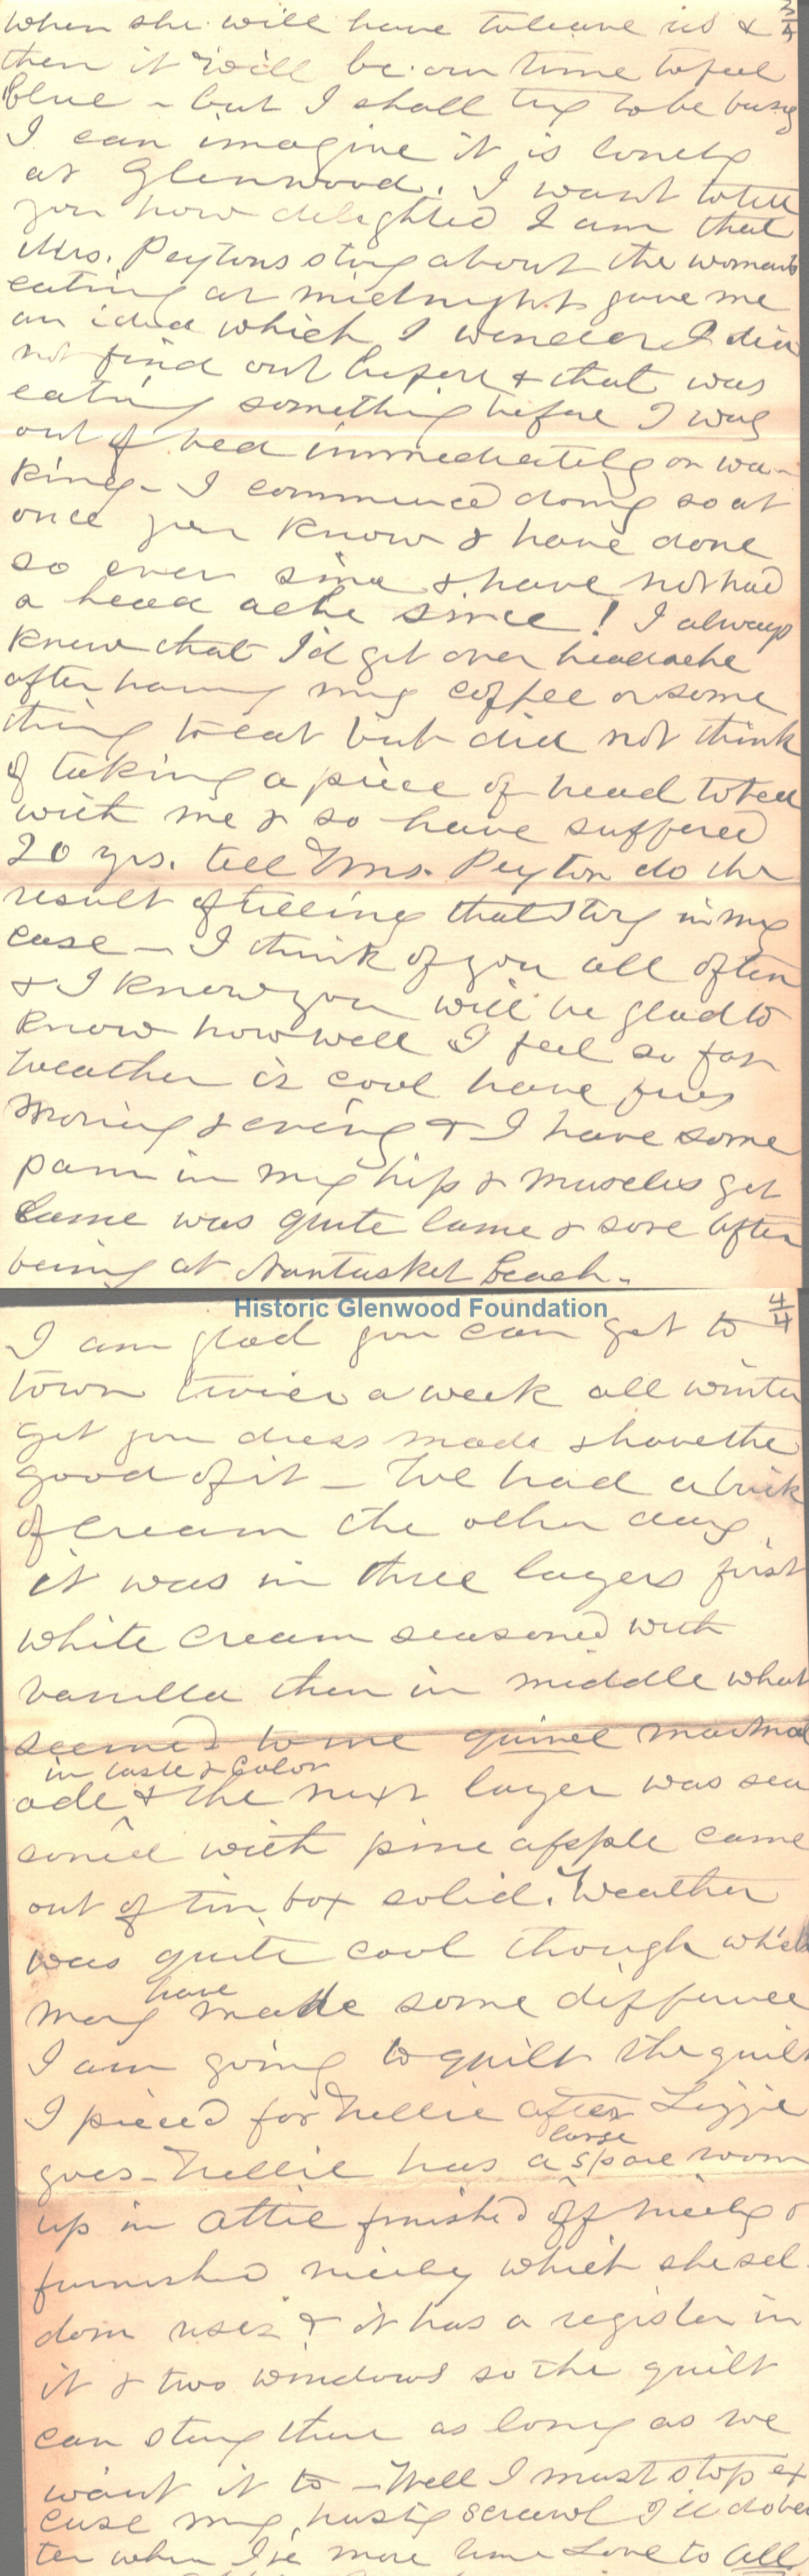 3/4
when she will have to leave us &
then it will be our time to feel
blue - but I shall try to be busy
I can imagine it is lonely
at Glenwood. I want to tell
you how delighted I am that
Mrs. Peytons story about the womans
eating at midnight gave me
an idea which I wonder I did
not find out before & that was
eating something before I was
out of bed immediately on wa-
king - I commenced doing so at
once you know & have done
so ever since & have not had
a head ache since! I always
knew that I'd get over headache
after having my coffee or some
thing to eat but did not think
of taking a piece of bread to bed
with me & so have suffered
20 yrs. tell Mrs. Peyton do the
result of telling that story in my
case - I think of you all often
& I know you will be glad to
know how well I feel so far
Weather is cool have fires
morning & evening & I have some
pain in my hip & muscles get
lame was quite lame & sore after
being at Nantasket Beach.
Historic Glenwood Foundation
4/4
I am glad you can get to
town twice a week all winter
get you dress made & have the
good of it - We had a brick
of cream the other day
it was in three layers first
white cream seasoned with
vanilla then in middle what
seemed to me quince marmal
in taste & color
ade & the next layer was sea
soned with pine apple came
out of tin box solid. Weather
was quite cool though which
may have made some difference
I am going to quilt the quilt
I pieced for Nellie after Lizzie
goes - Nellie has a large spare room
up in attic finished off nicely &
furnished nicely which she sel-
dom uses & it has a register in
it & two windows so the quilt
can stay there as long as we
want it to - Well I must stop ex
cuse my hasty scrawl I'll do bet
ter when I've more time Love to all